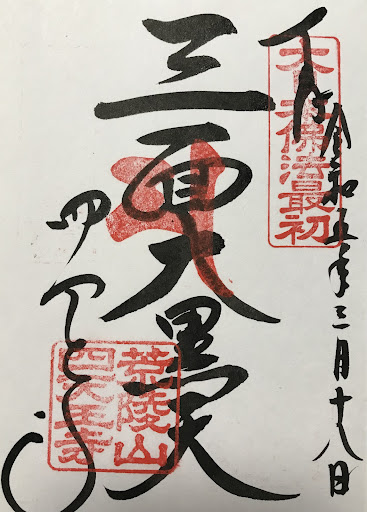 令和五年三月十八日
大日本佛法最初
三面大黒天
四天王寺
荒陵山
四天王寺